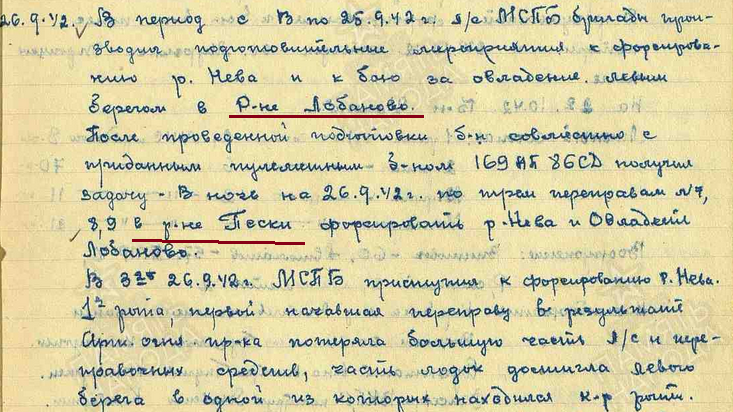 26.9.42. В период с 8 по 25.9.42 г. л/с МСПБ бригады прои-
зводил подготовительные мероприятия к форсирова-
нию р. Нева и к бою за овладение левым
берегом в р-не Лобаново.
После проведенной подготовки б-н совместно с
приданным пулеметным б-ном 169 АП 86СД получил
задачу - В ночь на 26.9.42г. по трем переправам №7,
8,9 в р-не Пески форсировать р. Нева и Овладеть
Лобаново
В 3 26.9.42г. МСПБ приступил к форсированию р. Нева.
1я рота, первой начавшая переправу в результате
Арт. огня пр-ка потеряла большую часть л/с и пере-
правочных средств, часть лодок достигла левого
берега в одной из которых находился к-р роты.